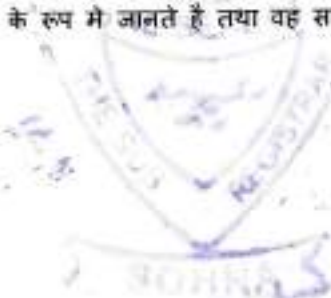 के रूप मे जानते है तथा वह स
THE SUB
REGISTRAR
SOHNA